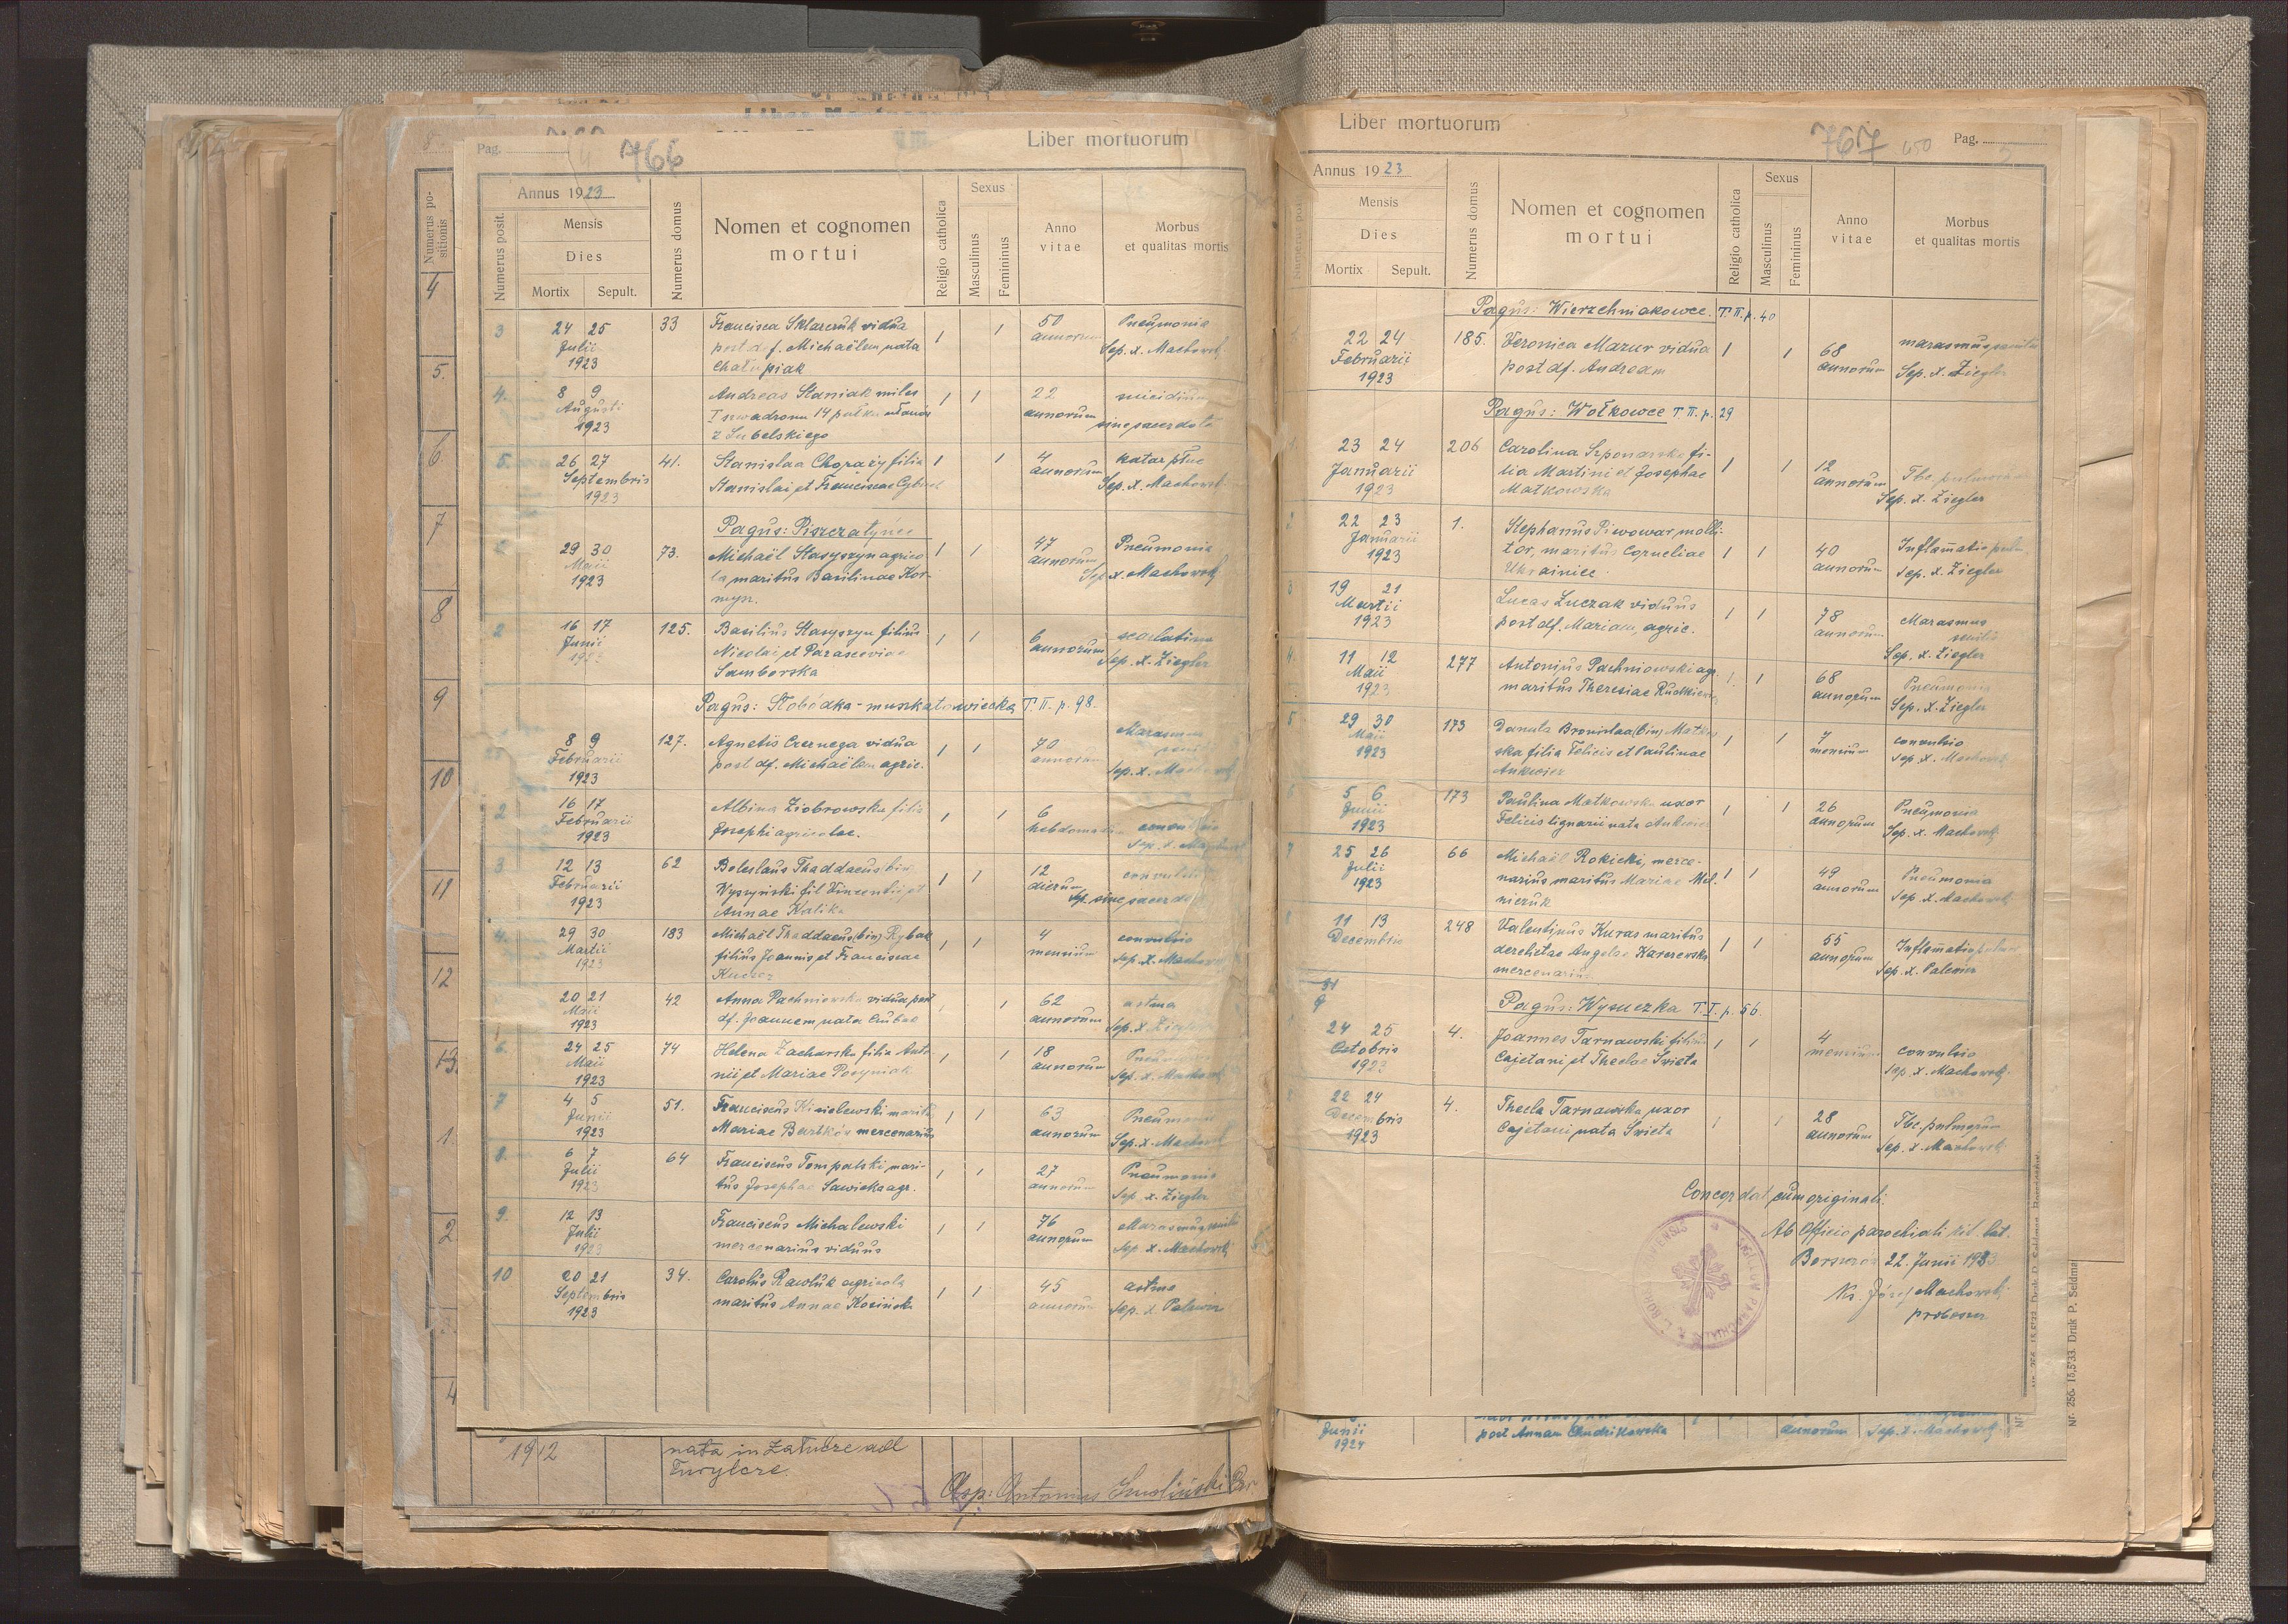 Pag. 766
Liber mortuorum
Annus 1923
Numerus posit.
Mensis
Dies
Mortix Sepult.
Numerus domus
Nomen et cognomen
mortui
Religio catholica
Sexus
Masculinus
Femininus
Anno
vitae
Morbus
et qualitas mortis
3 24 25 33 Francisca Sklarczuk vidua 1 1 50 Pneumonia
Julii post df. Michaëlem nata annorum Sep. x. Machowski
1923
4. 8 9 Andreas Staniak miles 1 1 22 suicidium
Augusti annorum sine sacerdote
1923
5. 26 27 41. Stanislaa Chorąży filia 1 1 4 katar płuc
Septembris Stanislai et Franciscae annorum Sep. x. Machowski
1923
Pagus: Piszczatyńce
29 30 73. Michaël Stasyszyn agrico 1 1 47 Pneumonia
Maii la maritus Basilinae Kor- annorum Sep. x. Machowski
1923
2 16 17 125. Basilius Stasyszyn filius 1 1 6 scarlatina
Junii Nicolai et Parasceviae annorum Sep. x. Ziegler
Samborska
Pagus: Słobódka-muszkatowiecka T II. p. 98.
8 9 127. Agnetis Czernega vidua 1 1 70 Marasmus
Februarii post df. Michaëlem agric. annorum Sep. x.
1923
2 16 17 Albina Ziobrowska filia 1 1 6
Februarii Josephi agricolae.
1923
3 12 13 62 Boleslaus Thaddaeus (bin) 1 1 12
Februarii Wyszyński fil Vincentii et dierum sine sacerdo
1923 Annae Kalika
4. 29 30 183 Michaël Thaddaeus (bin) Rybak 1 1 4 convulsio
Martii filius Joannis et Franciscae mensium Sep. x. Machowski
1923
20 21 42 Anna Pachniowska vidua post 1 62 astma
Maii df. Joannem nata annorum Sep. x. Ziegler
1923
6. 24 25 74 Helena Zacharska filia Anto 1 1 18
Maii nii et Mariae annorum Sep. x. Machowski
1923
7 4 5 51. Franciscus Kisielewski marit. 1 1 63 Pneumonia
Junii Mariae Bartków mercenarius annorum Sep. x. Machowski
1923
8. 6 7 64 Franciscus Tompalski mari- 1 1 27 Pneumonia
Julii tus Josephae Sawicka agr. annorum Sep. x. Ziegler
1923
9. 12 13 Franciscus Michalewski 1 1 76 Marasmus senilis
Julii mercenarius viduus annorum Sep. x. Machowski
1923
10 20 21 34. Carolus Rawluk agricola 1 1 45 astma
Septembris maritus Annae annorum Sep. x. Palewicz
1923
Numerus po-
sitionis
4
5.
6.
7
8
9
10
11
12
13
1.
2
1912 nata in
Antonius
Liber mortuorum
767 650 Pag.
Annus 1923
Mensis
Dies
Mortix Sepult.
Numerus domus
Nomen et cognomen
mortui
Religio catholica
Sexus
Masculinus
Femininus
Anno
vitae
Morbus
et qualitas mortis
Pagus: Wierzchniakowce. T. II. p. 40
22 24 185. Veronica Mazur vidua 1 1 68 marasmus senilis
Februarii post df. Andream annorum Sep. x. Ziegler
1923
Pagus: Wołkowce T. II. p. 29
23 24 206 Carolina Szponarska fi- 1 1 12 Tbc. pulmonum
Januarii lia Martini et Josephae annorum Sep. x. Ziegler
1923 Matkowska
2 22 23 1. Stephanus Piwowar moli- 1 1 40
Januarii tor, maritus Corneliae annorum Sep. x. Ziegler
1923 Ukrainiec
3 19 21 Lucas Łuczak viduus 1 1 78 Marasmus
Martii post df. Mariam, agric. annorum senilis
1923 Sep. x. Ziegler
4. 11 12 277 Antonius Pachniowski agr. 1 1 68 Pneumonia
Maii maritus Theresiae annorum Sep. x. Ziegler
1923
5 29 30 173 Danuta Bronislaa (bin) Matkow 1 1 7 convulsio
Maii ska filia Felicis et Paulinae mensium Sep. x. Machowski
1923
5 6 173 Paulina Matkowska uxor 1 1 26 Pneumonia
Junii Felicis lignarii nata annorum Sep. x. Machowski
1923
7 25 26 66 Michaël Rokicki, merce- 1 1 49 Pneumonia
Julii narius maritus Mariae Mel- annorum Sep. x. Machowski
1923 niczuk
11 13 248 Valentinus Kuras maritus 1 1 55
Decembris derelictae Angelae Karczewska annorum Sep. x. Palewicz
mercenarius
Pagus: Wysuczka T. I. p. 56.
24 25 4. Joannes Tarnawski filius 1 1 4 convulsio
Octobris Cajetani et Theclae Święta mensium Sep. x. Machowski
1923
22 24 4. Thecla Tarnawska uxor 1 1 28 Tbc. pulmonum
Decembris Cajetani nata Święta annorum Sep. x. Machowski
1923
Concordat cum originali.
Ab Officio parochiali rit. lat.
22. Junii
Ks. Józef Machowski
proboszcz
Junii post Annam annorum Sep. x. Machowski
1924
Nr. 256. 15,5'33. Druk P. Seldma